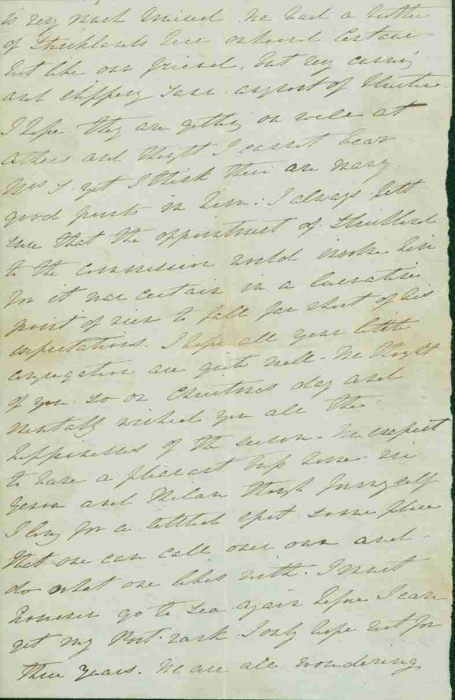 is very much missed. We had a letter
of Stricklands here
but like our friend, but very
and
I hope they are getting on well at
Athens and though I cannot bear
Mrs S. yet I think there are many
good points in him. I always felt
sure that the appointment of Strickland
to the commission would
for it was certain in a lucrative
point of view to fall far short of his
expectations. I hope all your little
congregation are quite well. We thought
of you so on Christmas day and
mentally wished you all the
happinesses of the season. We expect
to have a pleasant trip home via
Genoa and Milan though for myself
I long for a settled spot some place
that one can call ones own and
do what one likes with. I must
however go to sea again before I can
get my Post rank I only hope not for
three years. We are all wondering